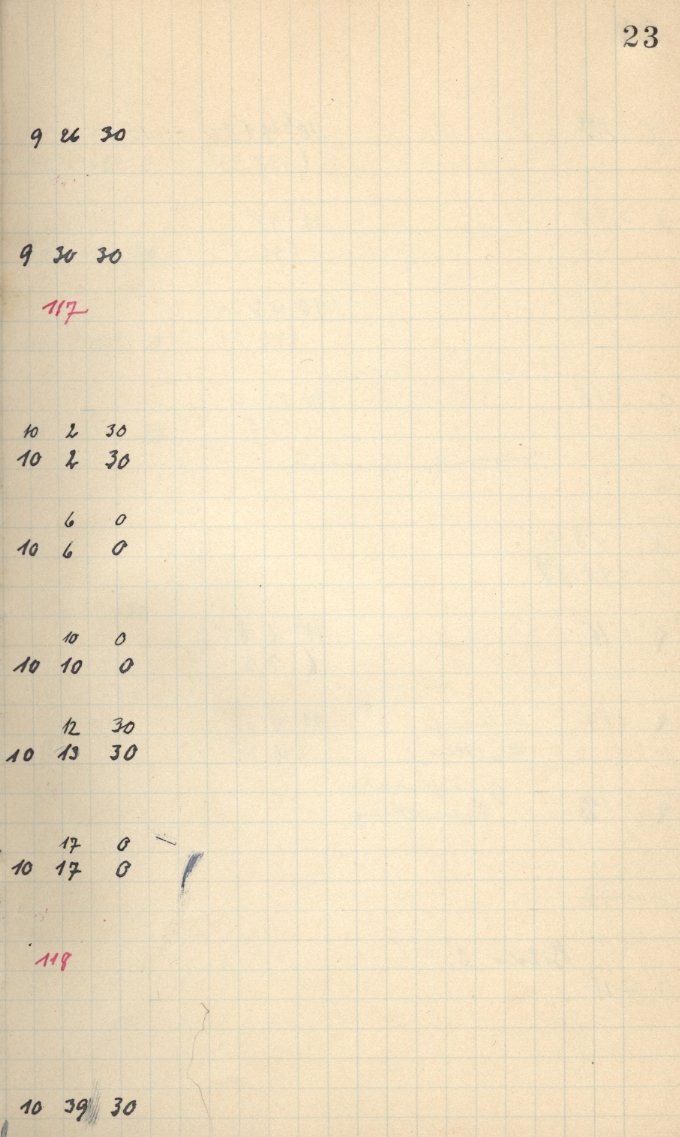 23
9 26 30
9 30 30
117
10 2 30
10 2 30
6 0
10 6 0
10 0
10 10 0
12 30
10 13 30
17 0
10 17 0
118
10 39 30